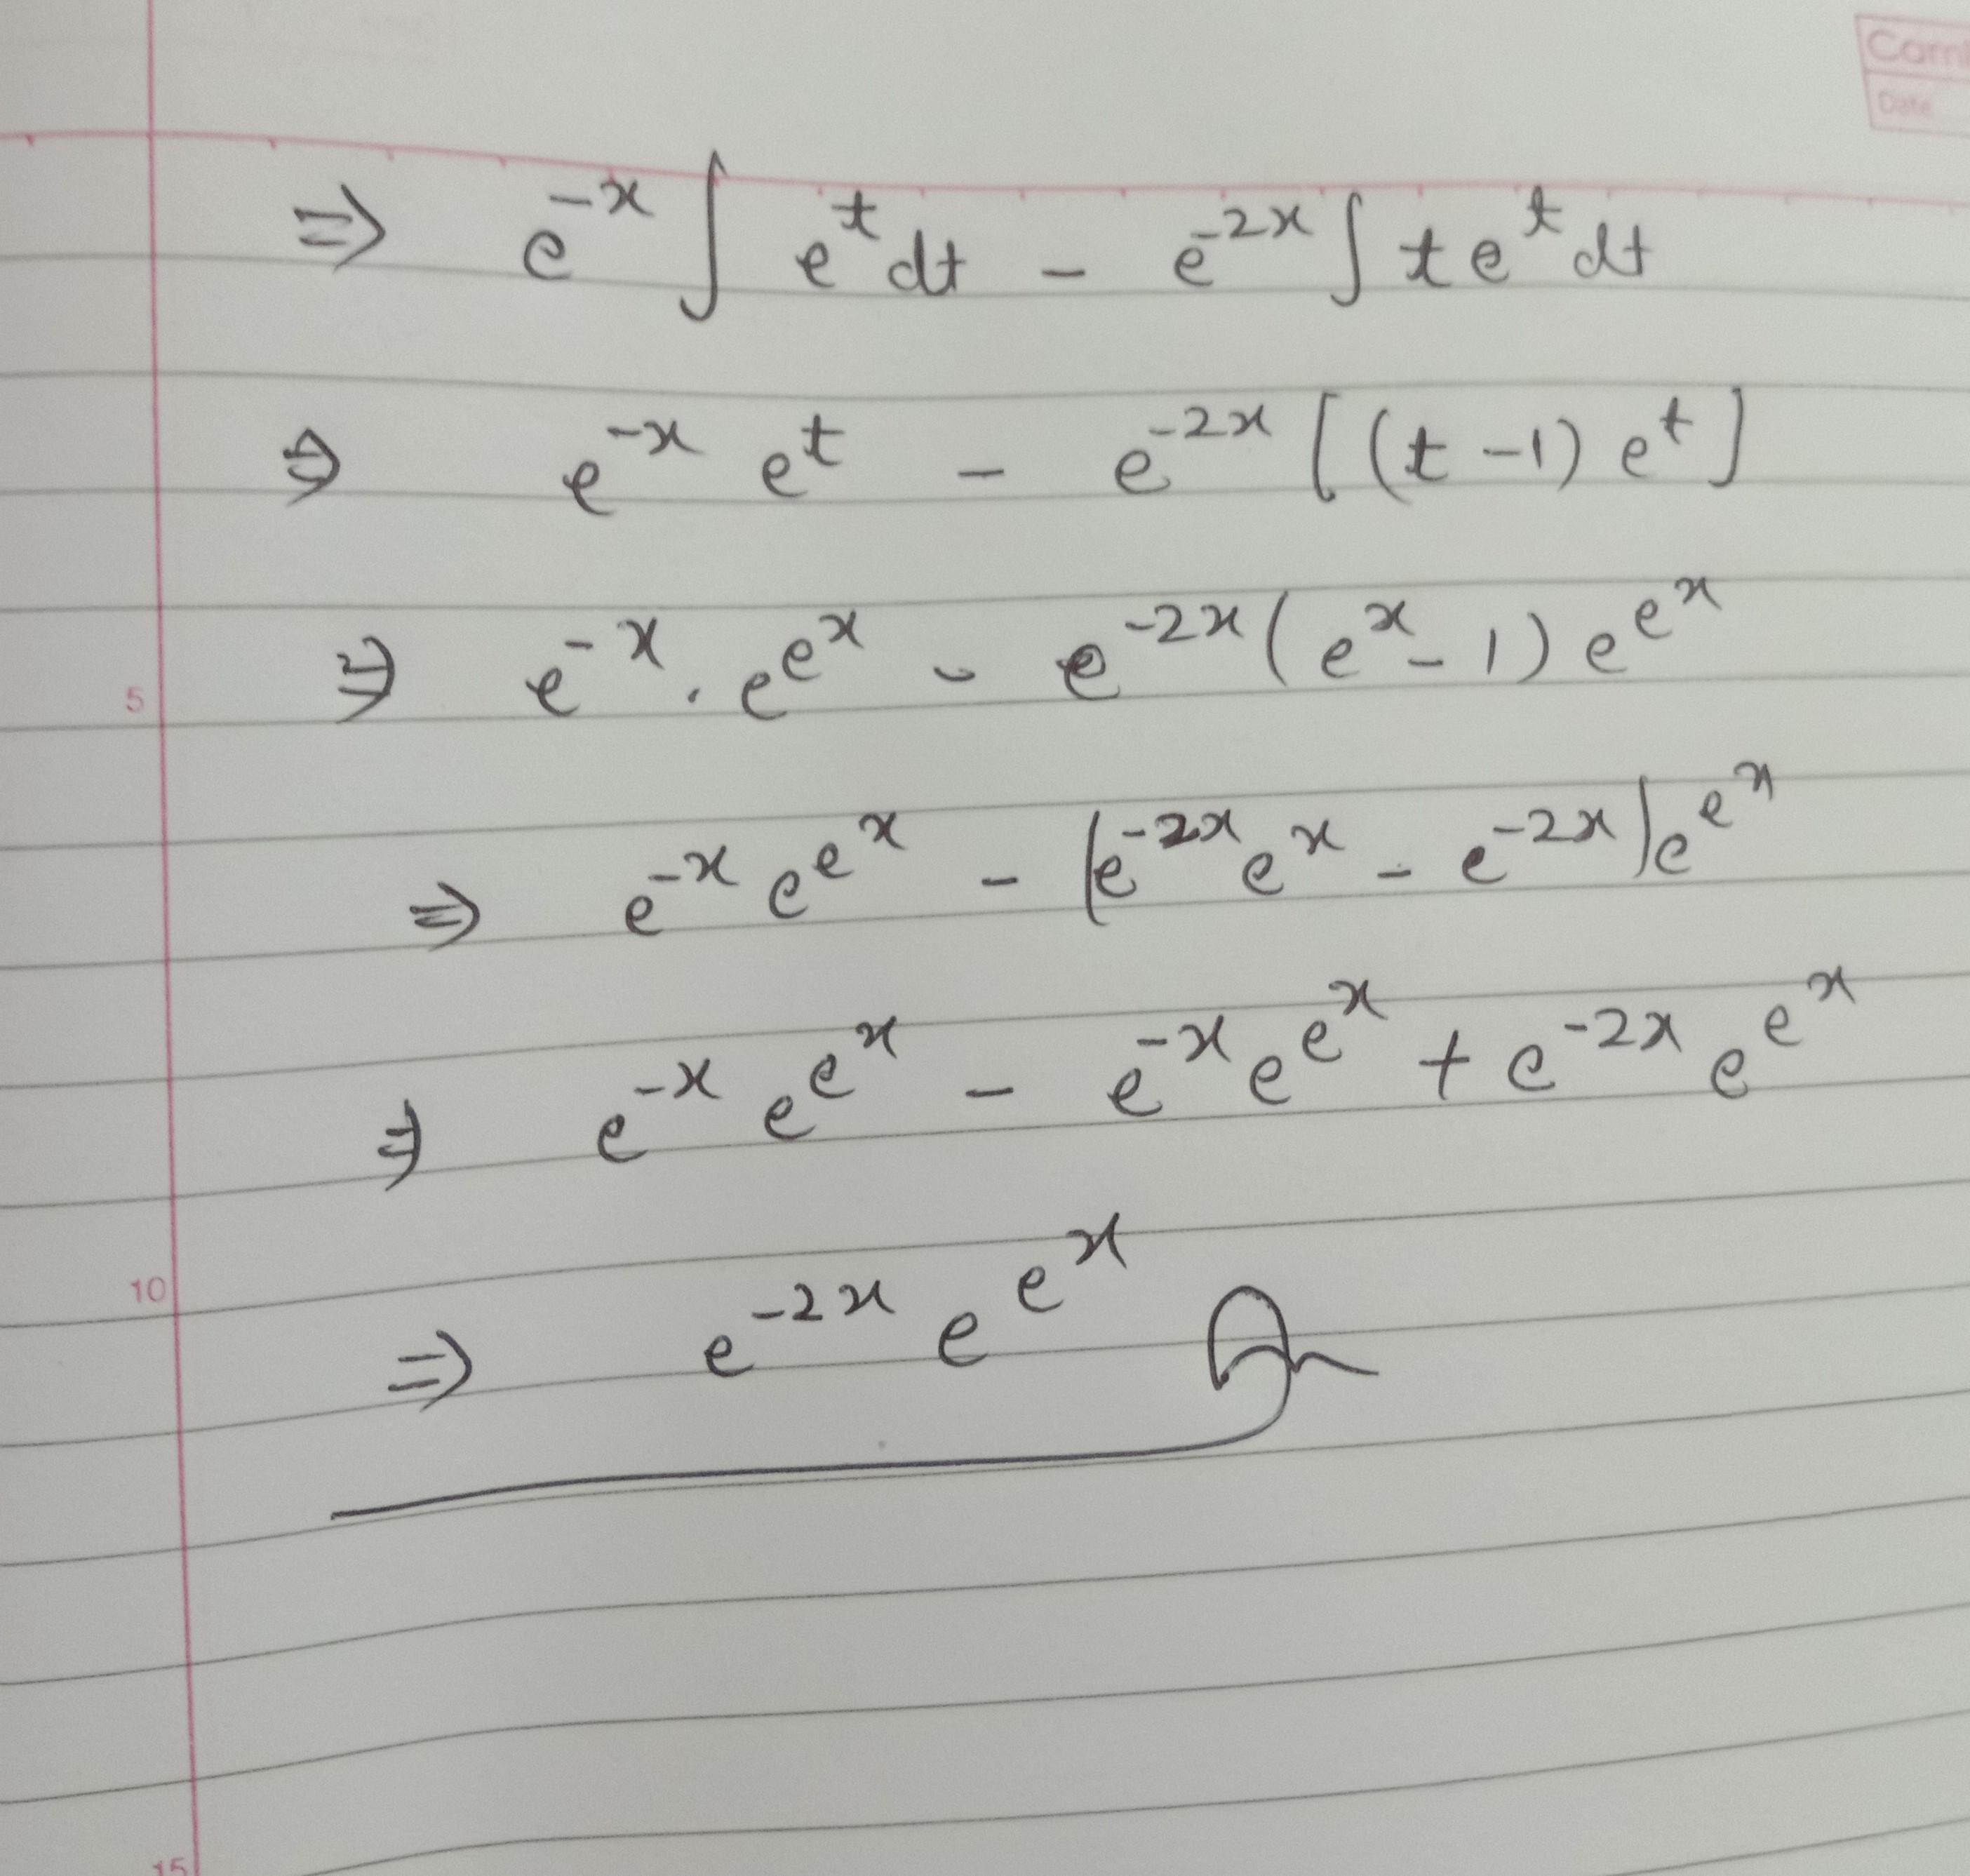 Date
⇒ e^{-x} ∫ e^t dt - e^{-2x} ∫ t e^t dt
⇒ e^{-x} e^t - e^{-2x} [(t-1) e^t]
⇒ e^{-x} . e^{e^x} - e^{-2x} (e^x - 1) e^{e^x}
5
⇒ e^{-x} e^{e^x} - (e^{-2x} e^x - e^{-2x}) e^{e^x}
⇒ e^{-x} e^{e^x} - e^{-x} e^{e^x} + e^{-2x} e^{e^x}
10
⇒ e^{-2x} e^{e^x}
15